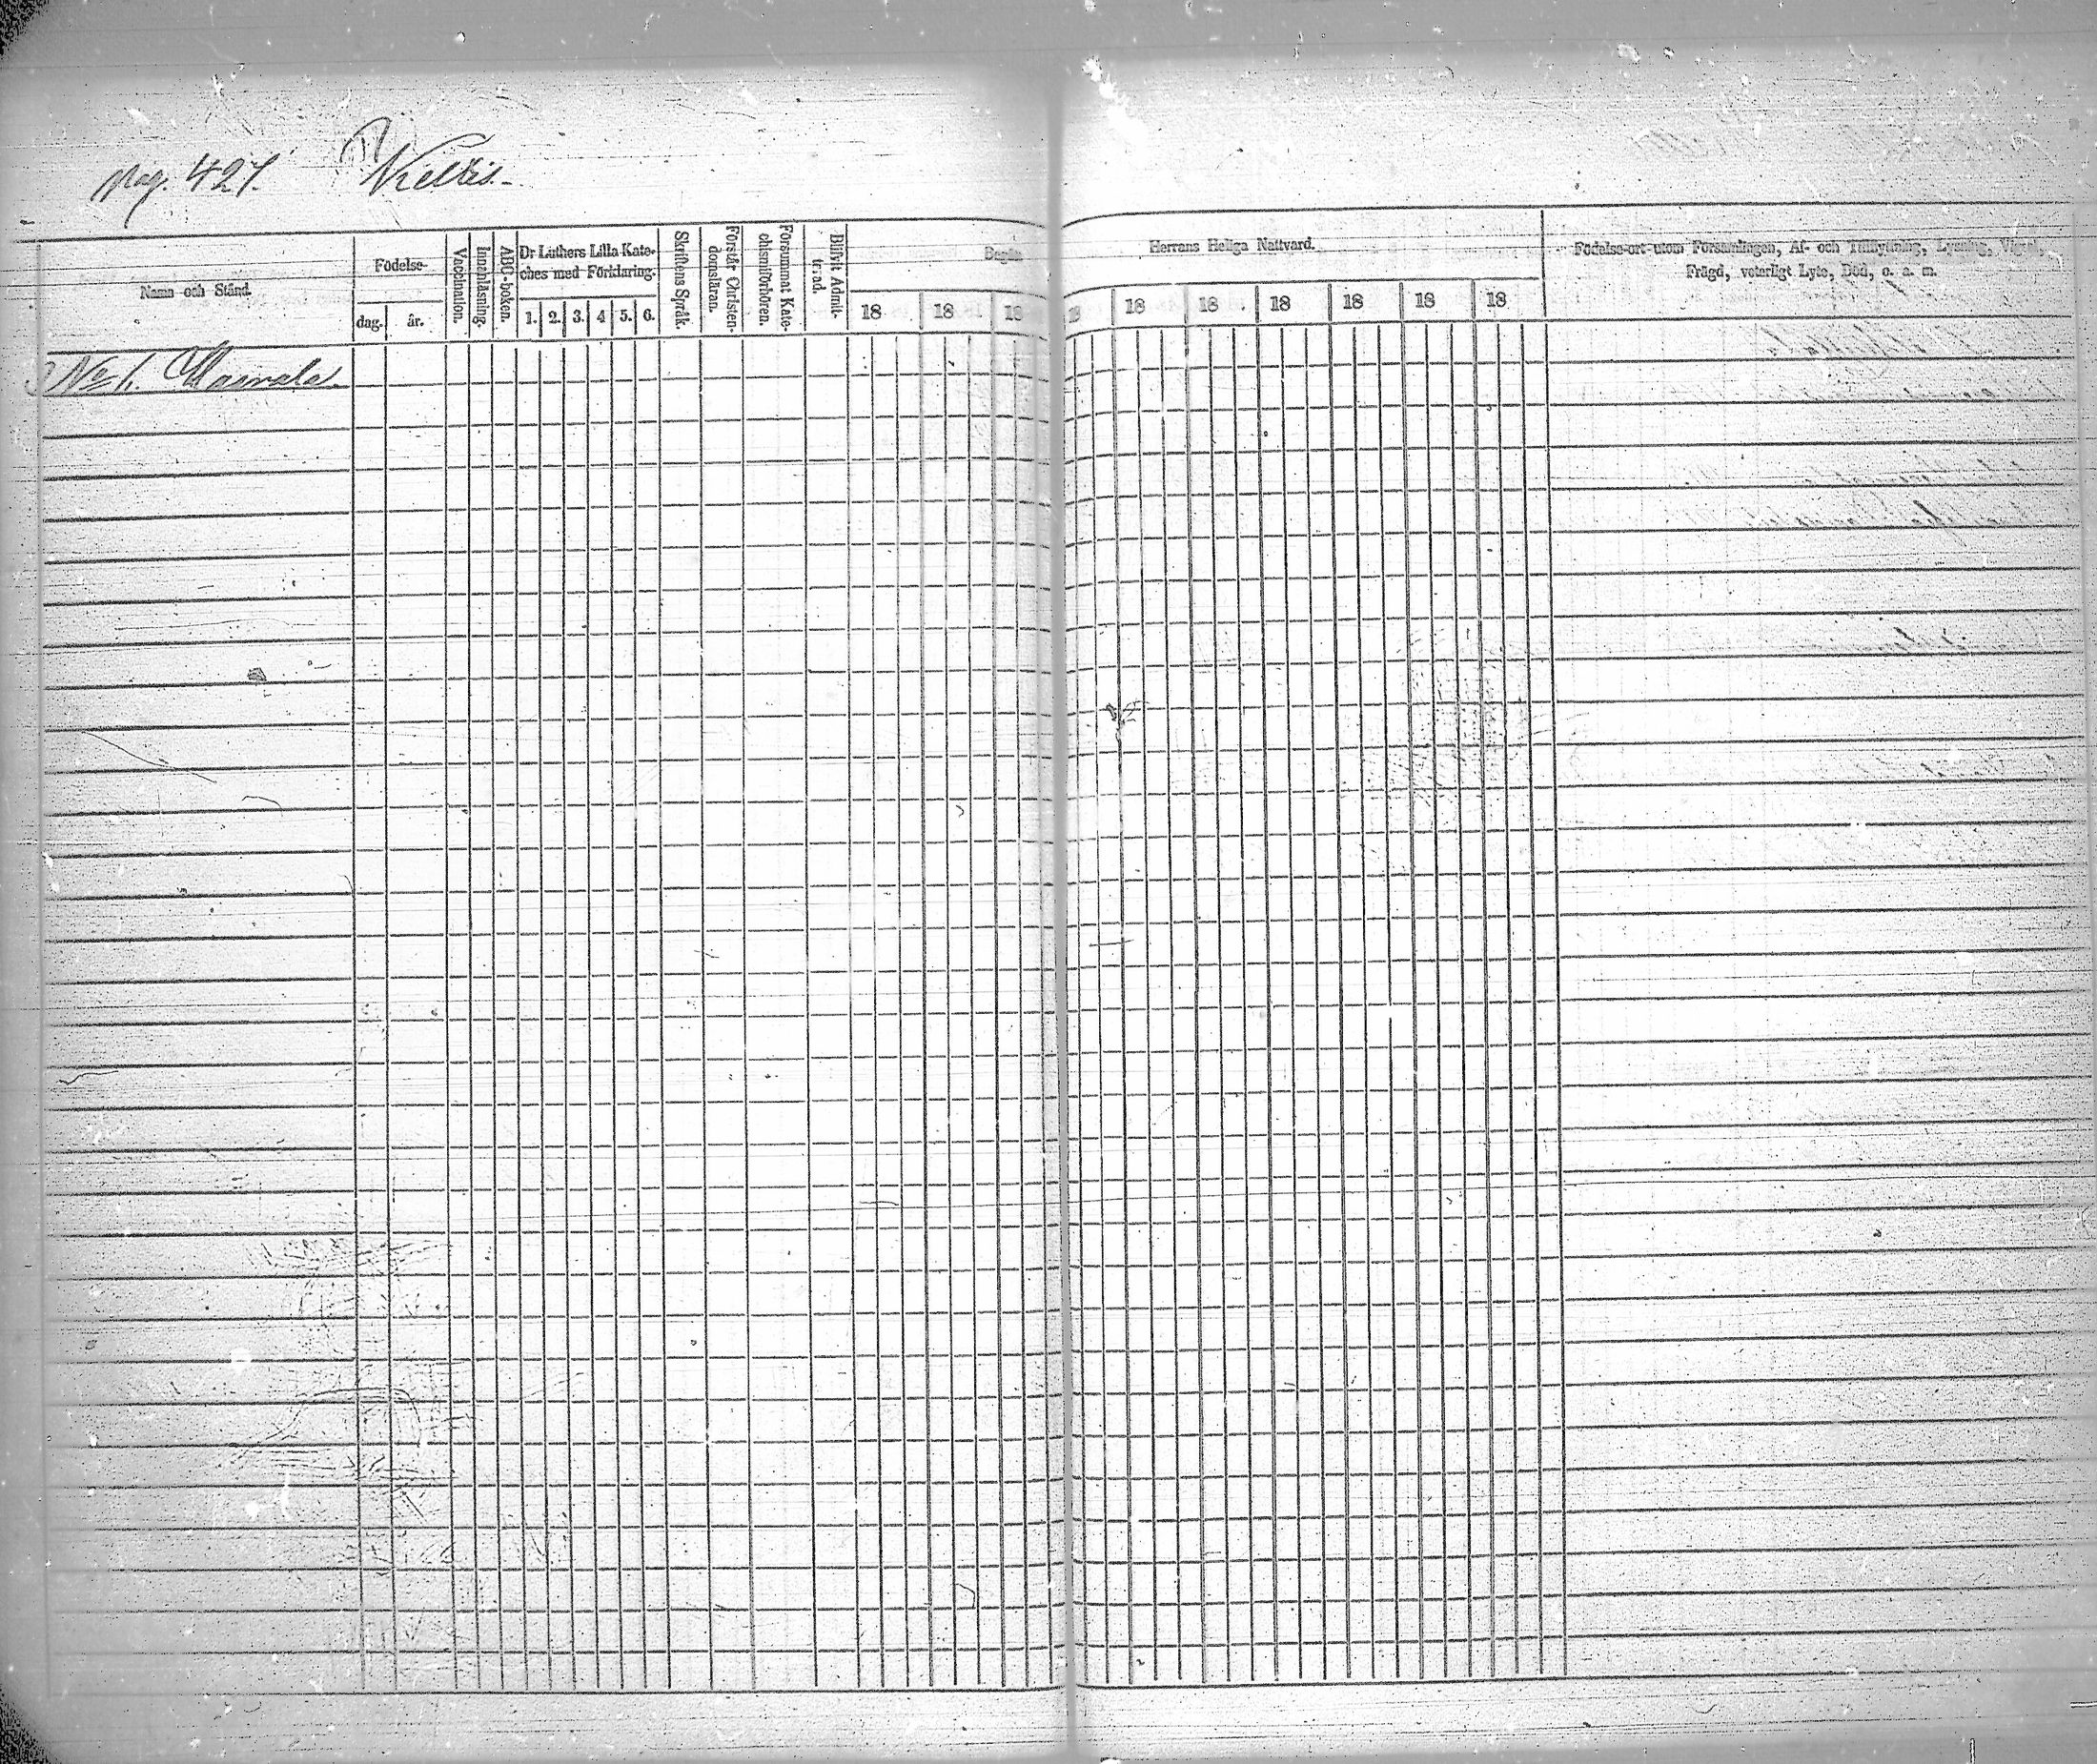 pag. 427. Keltis.
Namn och Stånd.
Födelse-
dag. år.
Vaccination.
Innanläsning.
ABC-boken.
Dr Luthers Lilla Kate-
ches med Förklaring.
1. 2. 3. 4 5. 6.
Skriftens Språk.
Förstår Christen-
domsläran.
Försummat Kate-
chismiförhören.
Blifvit Admit-
terad.
Begått Herrans Heliga Nattvard.
18 18 18 18 18 18 18 18 18 18
Födelse-ort utom Församlingen, Af- och Tillflyttning, Lysning, Vigsel,
Frägd, veterligt Lyte, Död, o. a. m.
No 1.